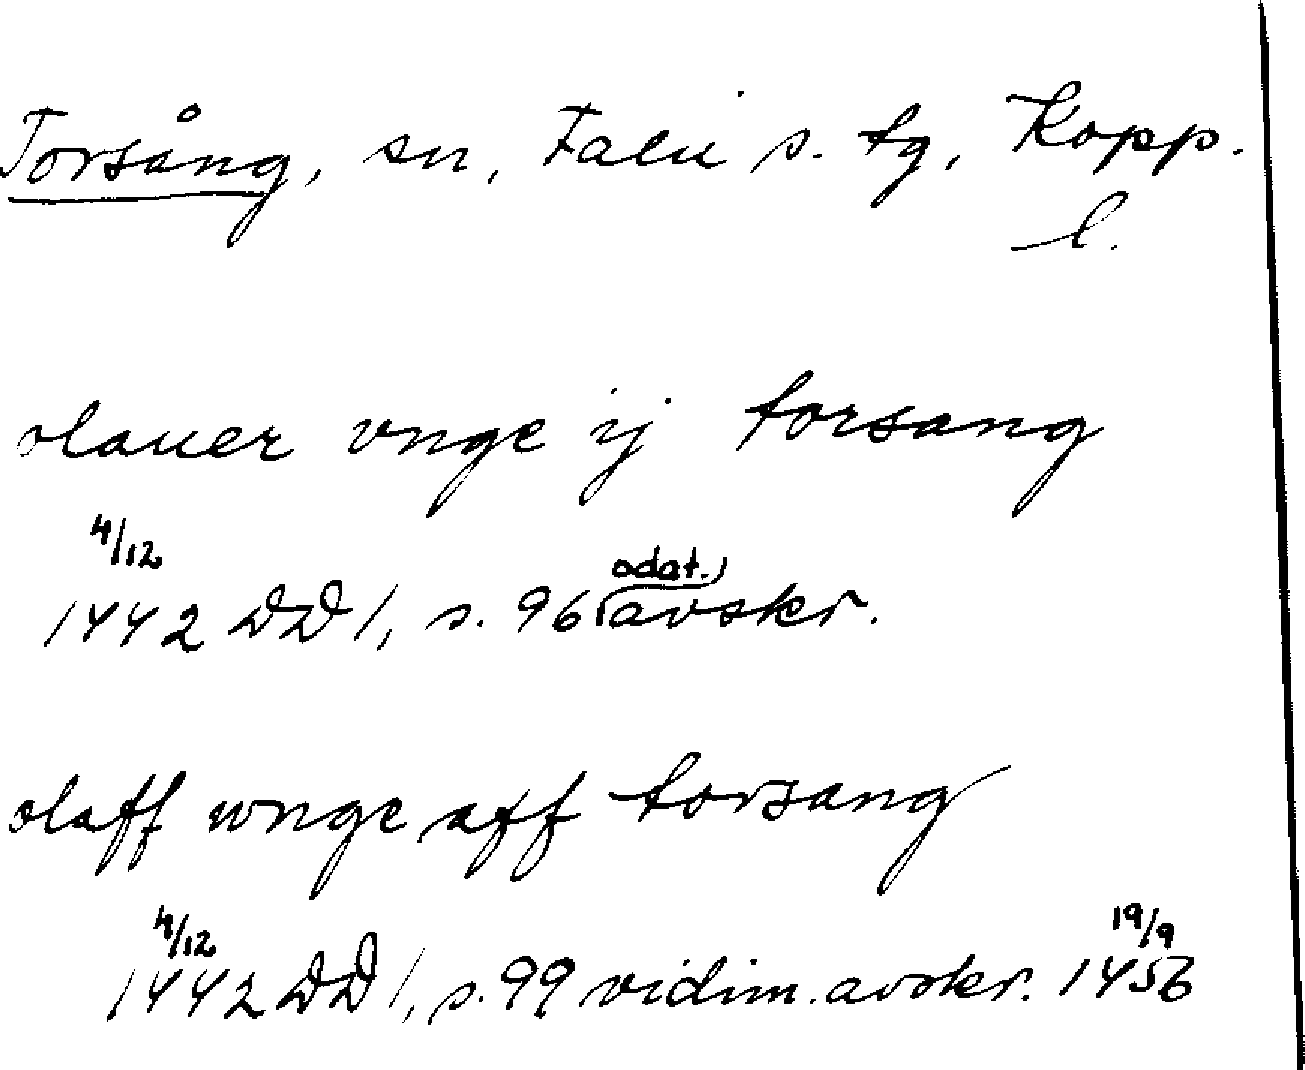 Torsång, sn, Falu s. tg, Kopp.
l.
olauer vnge ij torsang
4/12
odat.)
1442 DD 1, s. 96 (avskr.
olaff wnge aff torsang
4/12 19/9
1442 DD 1, s. 99 vidim. avskr. 1456